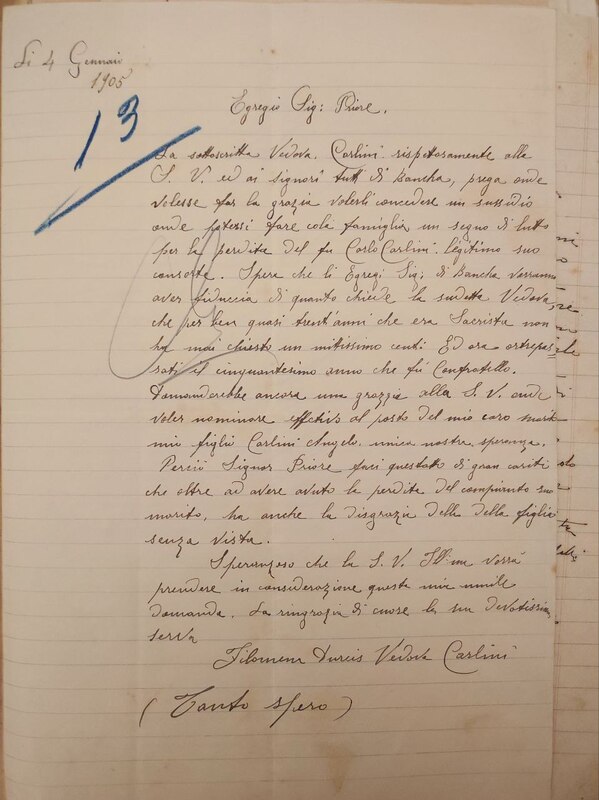 Li 4 Gennaio
1905
13
Egregio Sig: Priore.
La sottoscritta Vedova. Carlini rispettosamente alla
S. V. ed ai signori tutti di Bancha, prega onde
volesse far la grazia volerli concedere un sussidio
onde potersi fare colà famiglia un segno di lutto
per la perdita del fu Carlo Carlini. legitimo suo
consorte. Spera che li Egregi Sig: di Bancha vorranno
aver fiduccia di quanto chiede la sudetta Vedova,
che per ben quasi trent'anni che era Sacrista non
ha mai chiesto un mitissimo centi. Ed ora ortrepas-
sati il cinquantesimo anno che fù Confratello.
Domanderebbe ancora una grazzia alla S. V. onde
voler nominare effettivo al posto del mio caro marito
mio figlio Carlini Angelo. unica nostra speranza.
Perciò Signor Priore faci questatto di gran cariti
che oltre ad avere avuto la perdita del compianto suo
marito, ha anche la disgrazia della della figlia
senza vista.
Speranzoso che la S. V. Ill'ma vorrà
prendere in considerazione questa mia umile
domanda. La ringrazia di cuore la sua devotissima
serva
Filomena Vedova Carlini
(Tanto spero)